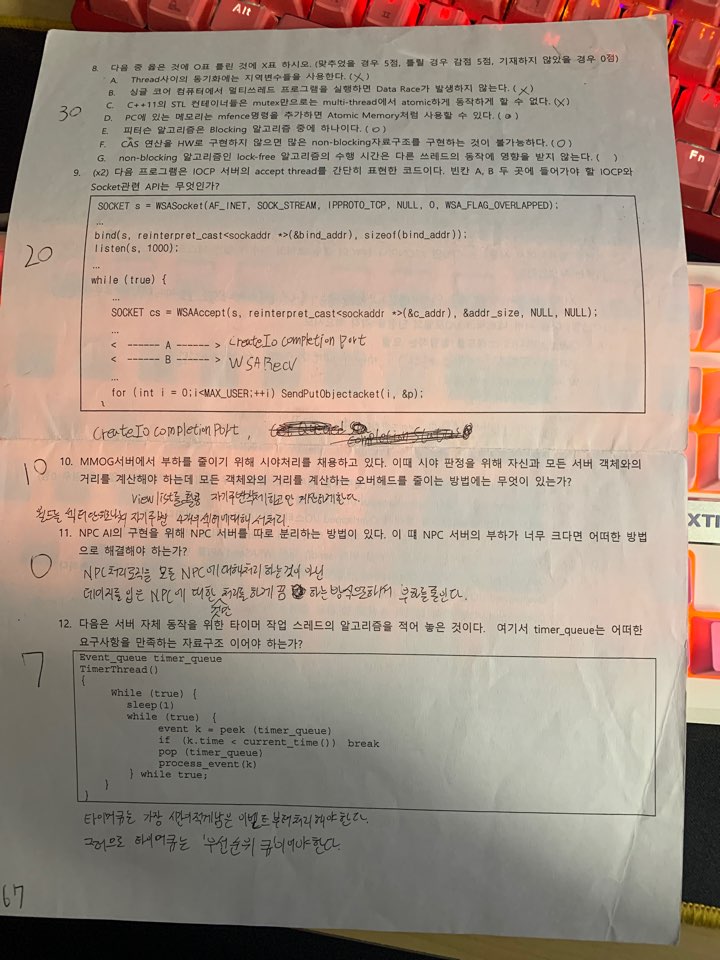 Alt
Fn
8. 다음 중 옳은 것에 O표 틀린 것에 X표 하시오. (맞추었을 경우 5점, 틀릴 경우 감점 5점, 기재하지 않았을 경우 0점)
A. Thread사이의 동기화에는 지역변수들을 사용한다. (X)
B. 싱글 코어 컴퓨터에서 멀티쓰레드 프로그램을 실행하면 Data Race가 발생하지 않는다. (X)
30
C. C++11의 STL 컨테이너들은 mutex만으로는 multi-thread에서 atomic하게 동작하게 할 수 없다. (X)
D. PC에 있는 메모리는 mfence명령을 추가하면 Atomic Memory처럼 사용할 수 있다. (o)
E. 피터슨 알고리즘은 Blocking 알고리즘 중에 하나이다. (o)
F. CAS 연산을 HW로 구현하지 않으면 많은 non-blocking자료구조를 구현하는 것이 불가능하다. (O)
G. non-blocking 알고리즘인 lock-free 알고리즘의 수행 시간은 다른 쓰레드의 동작에 영향을 받지 않는다. ( )
9. (x2) 다음 프로그램은 IOCP 서버의 accept thread를 간단히 표현한 코드이다. 빈칸 A, B 두 곳에 들어가야 할 IOCP와
Socket관련 API는 무엇인가?
SOCKET s = WSASocket(AF_INET, SOCK_STREAM, IPPROTO_TCP, NULL, 0, WSA_FLAG_OVERLAPPED);
...
bind(s, reinterpret_cast<sockaddr *>(&bind_addr), sizeof(bind_addr));
20
listen(s, 1000);
...
while (true) {
...
SOCKET cs = WSAAccept(s, reinterpret_cast<sockaddr *>(&c_addr), &addr_size, NULL, NULL);
...
< ------ A ------ > createIo completion Port
< ------ B ------ > WSARecv
...
for (int i = 0;i<MAX_USER;++i) SendPutObjectacket(i, &p);
}
createIo completionPort ,
10
10. MMOG서버에서 부하를 줄이기 위해 시야처리를 채용하고 있다. 이때 시야 판정을 위해 자신과 모든 서버 객체와의
거리를 계산해야 하는데 모든 객체와의 거리를 계산하는 오버헤드를 줄이는 방법에는 무엇이 있는가?
View list를 활용 자기주변객체하고만 계산하게한다.
자기주변 4개의 섹터에대해서처리
11. NPC AI의 구현을 위해 NPC 서버를 따로 분리하는 방법이 있다. 이 때 NPC 서버의 부하가 너무 크다면 어떠한 방법
으로 해결해야 하는가?
0
NPC처리로직을 모든 NPC에대해처리하는것이 아닌
데미지를 입은 NPC에 대한 처리를 하게끔 하는 방식으로해서 부하를줄인다.
것만
12. 다음은 서버 자체 동작을 위한 타이머 작업 스레드의 알고리즘을 적어 놓은 것이다. 여기서 timer_queue는 어떠한
요구사항을 만족하는 자료구조 이어야 하는가?
7
Event_queue timer_queue
TimerThread()
{
While (true) {
sleep(1)
while (true) {
event k = peek (timer_queue)
if (k.time < current_time()) break
pop (timer_queue)
process_event(k)
} while true;
}
}
타이머큐는 가장 시간이적게남은 이벤트부터처리해야한다.
그러므로 타이머큐는 '우선순위 큐'이어야한다.
67